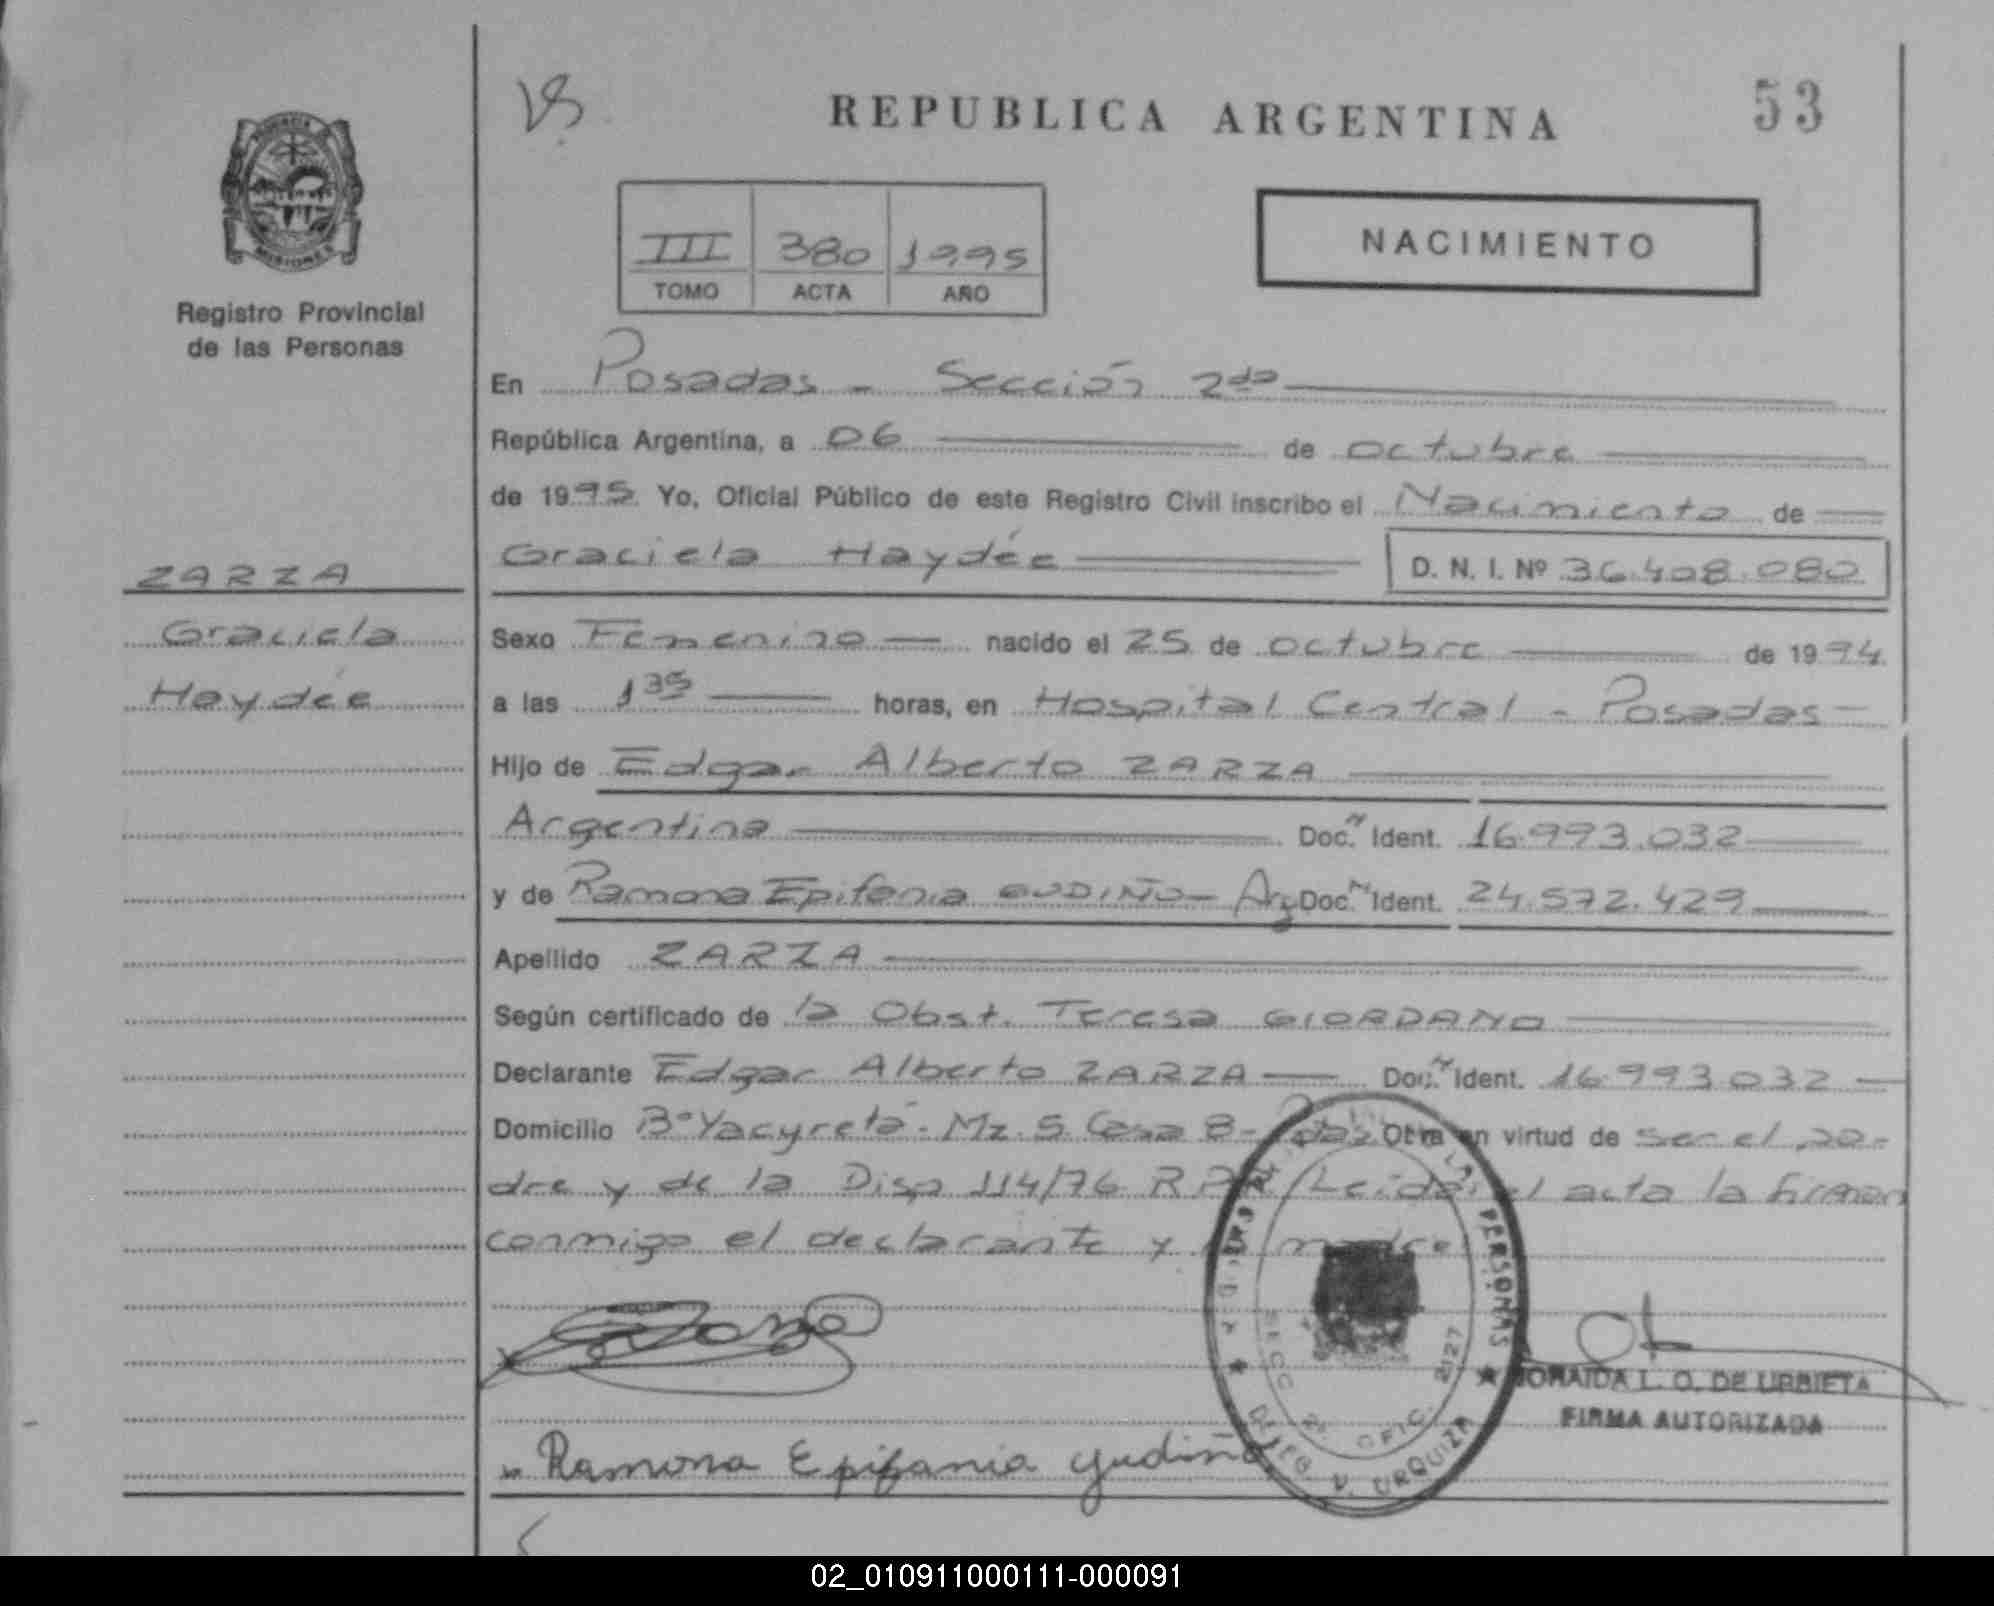 53
REPUBLICA ARGENTINA
PROVINCIA DE
MISIONES
Registro Provincial
de las Personas
III 380 1995
TOMO ACTA AÑO
NACIMIENTO
En Posadas - Sección 2da
República Argentina, a 06 de octubre
de 1995. Yo, Oficial Público de este Registro Civil inscribo el Nacimiento de
Graciela Haydée D. N. I. Nº 36.408.080
ZARZA
Graciela
Haydée
Sexo Femenino nacido el 25 de octubre de 1994
a las 1 35 horas, en Hospital Central - Posadas
Hijo de Edgar Alberto ZARZA
Argentina Doc. N Ident. 16.993.032
y de Ramona Epifania GUDIÑO - Arg Doc. N Ident. 24.572.429
Apellido ZARZA
Según certificado de la Obst. Teresa GIORDANO
Declarante Edgar Alberto ZARZA Doc. N Ident. 16.993.032
Domicilio Bº Yacyretá - Mz. S Casa 8 - Pdas Obra en virtud de ser el pa-
dre y de la Disp 114/76 R.P. Leída el acta la firman
conmigo el declarante y madre
Zarza
Ramona Epifania Gudiño
PERSONAS
SECC 2ª OFIC. 2127
DELEG. V. URQUIZA
ZORAIDA L. O. DE URBIETA
FIRMA AUTORIZADA
02_010911000111-000091